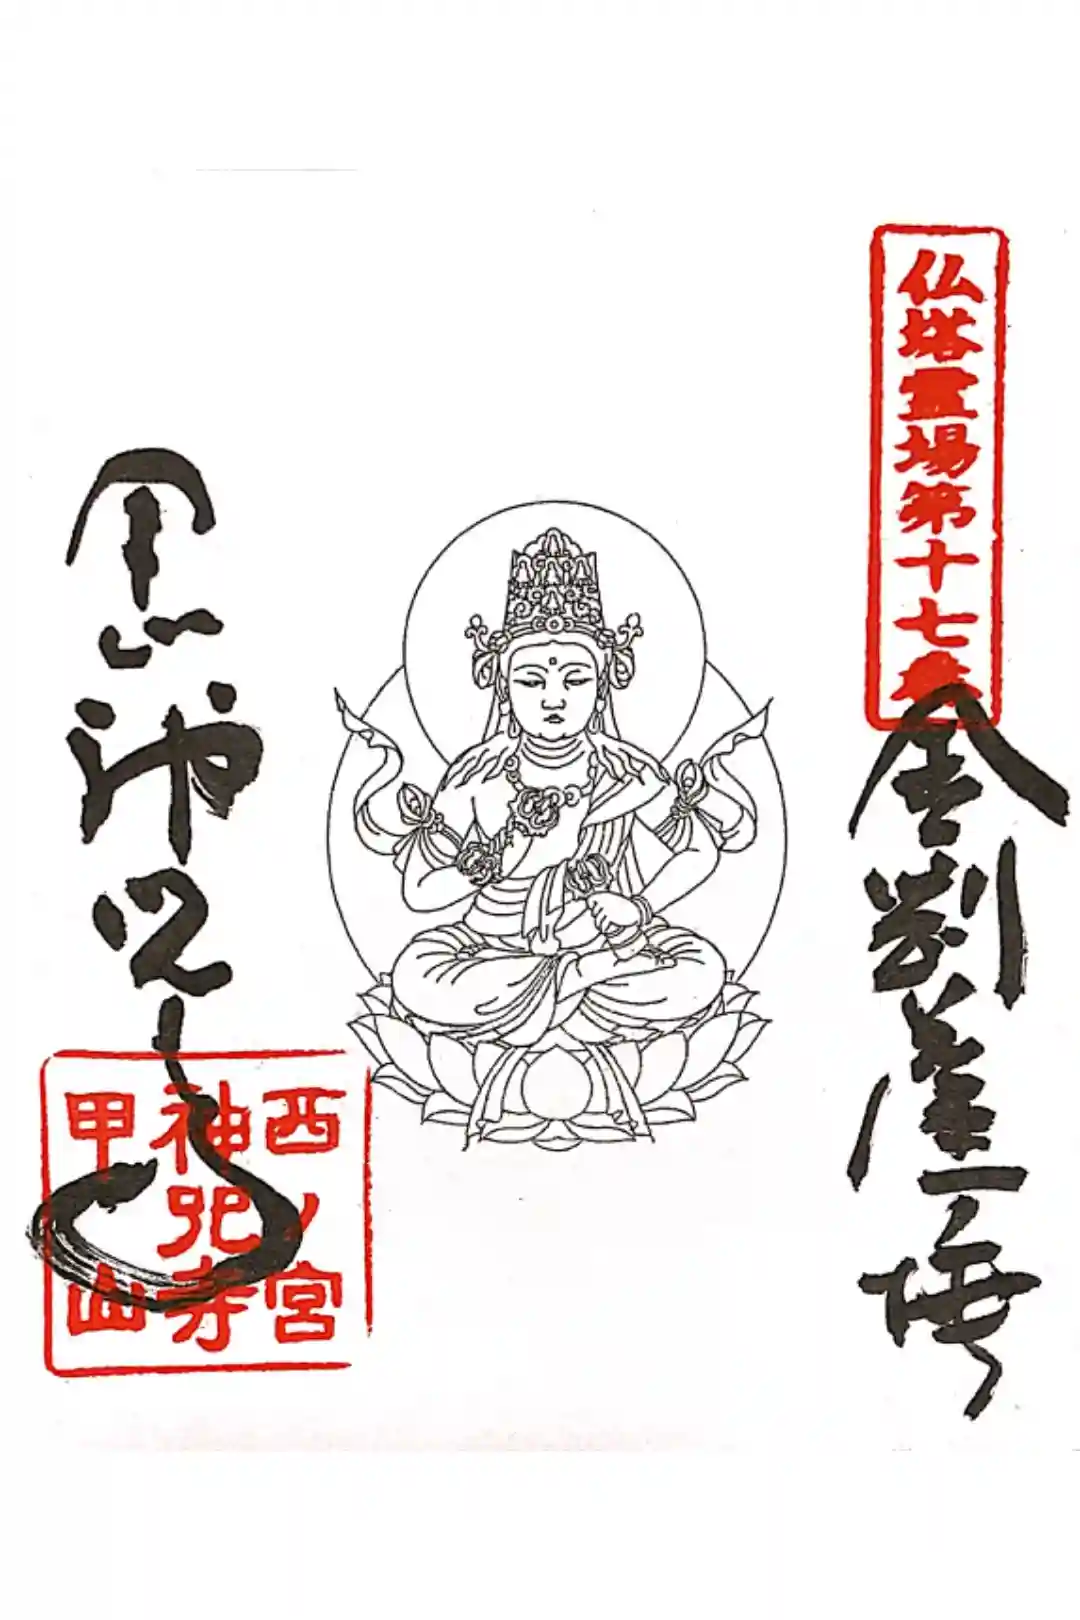 仏塔霊場第十七番
金剛薩埵
甲山神呪寺
西ノ宮
神呪寺
甲山